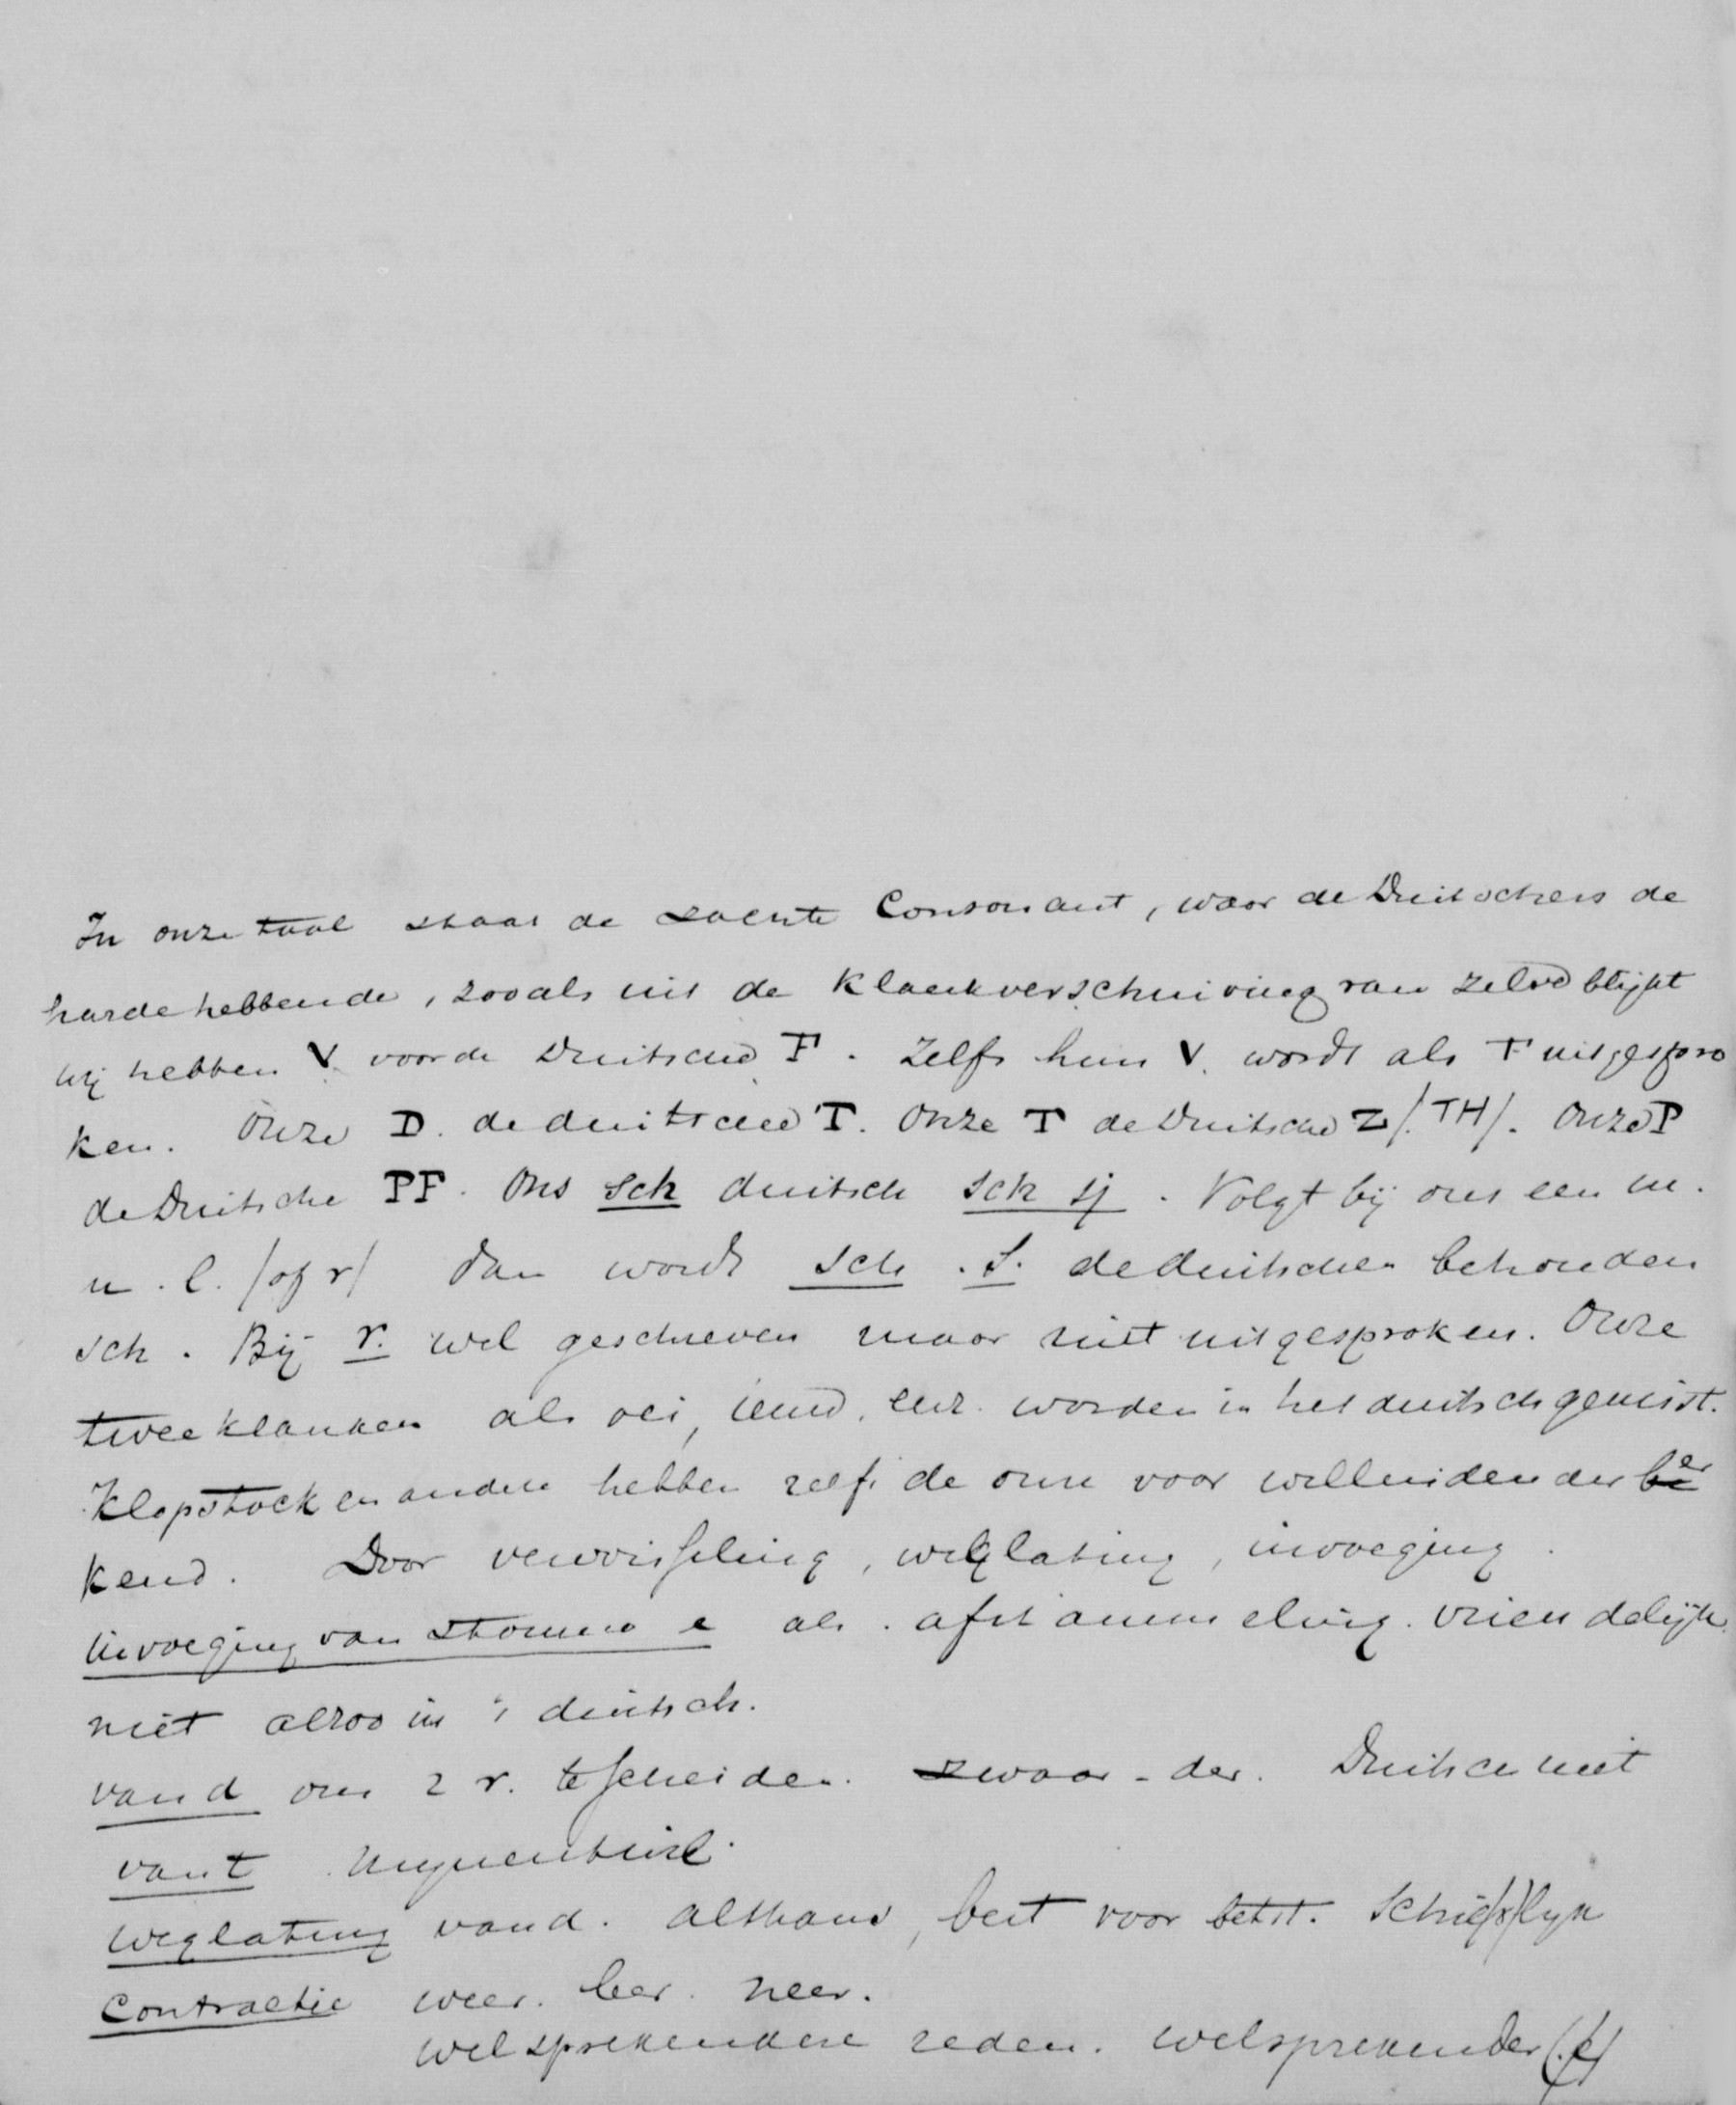 In onze taal staat de zachte Consonant, waar de Duitschers de
harde hebbende, zooals uit de Klankverschuiving van zelve blijkt
wij hebben V. voor de Duitsche F. Zelfs hun V. wordt als F uitgespro
ken. Onze D. de duitsche T. Onze T de Duitsche Z/. TH/. Onze P
de Duitsche PF. Ons sch duitsch sch sj. Volgt bij ons een m.
n. l. /of r/ dan wordt sch. S. de duitschen behouden
sch. Bij r. wel geschreven maar niet uitgesproken. Onze
tweeklanken als oei, enz. worden in het duitsch gemist.
Klopstock en andere hebben zelfs de onze voor welluidender er
kend. Door verwisseling, weglating, invoeging.
Invoeging van stomme e als. afstammeling. vriendelijk
niet alzoo in 't duitsch.
van d om 2 r. te scheiden. zwaar-der. Duitsch niet
van t
weglating van d. althans, best voor betst. Schrif(t)lijk
Contractie weer. leer. neer.
welsprekendere reden. welsprekender (.e)